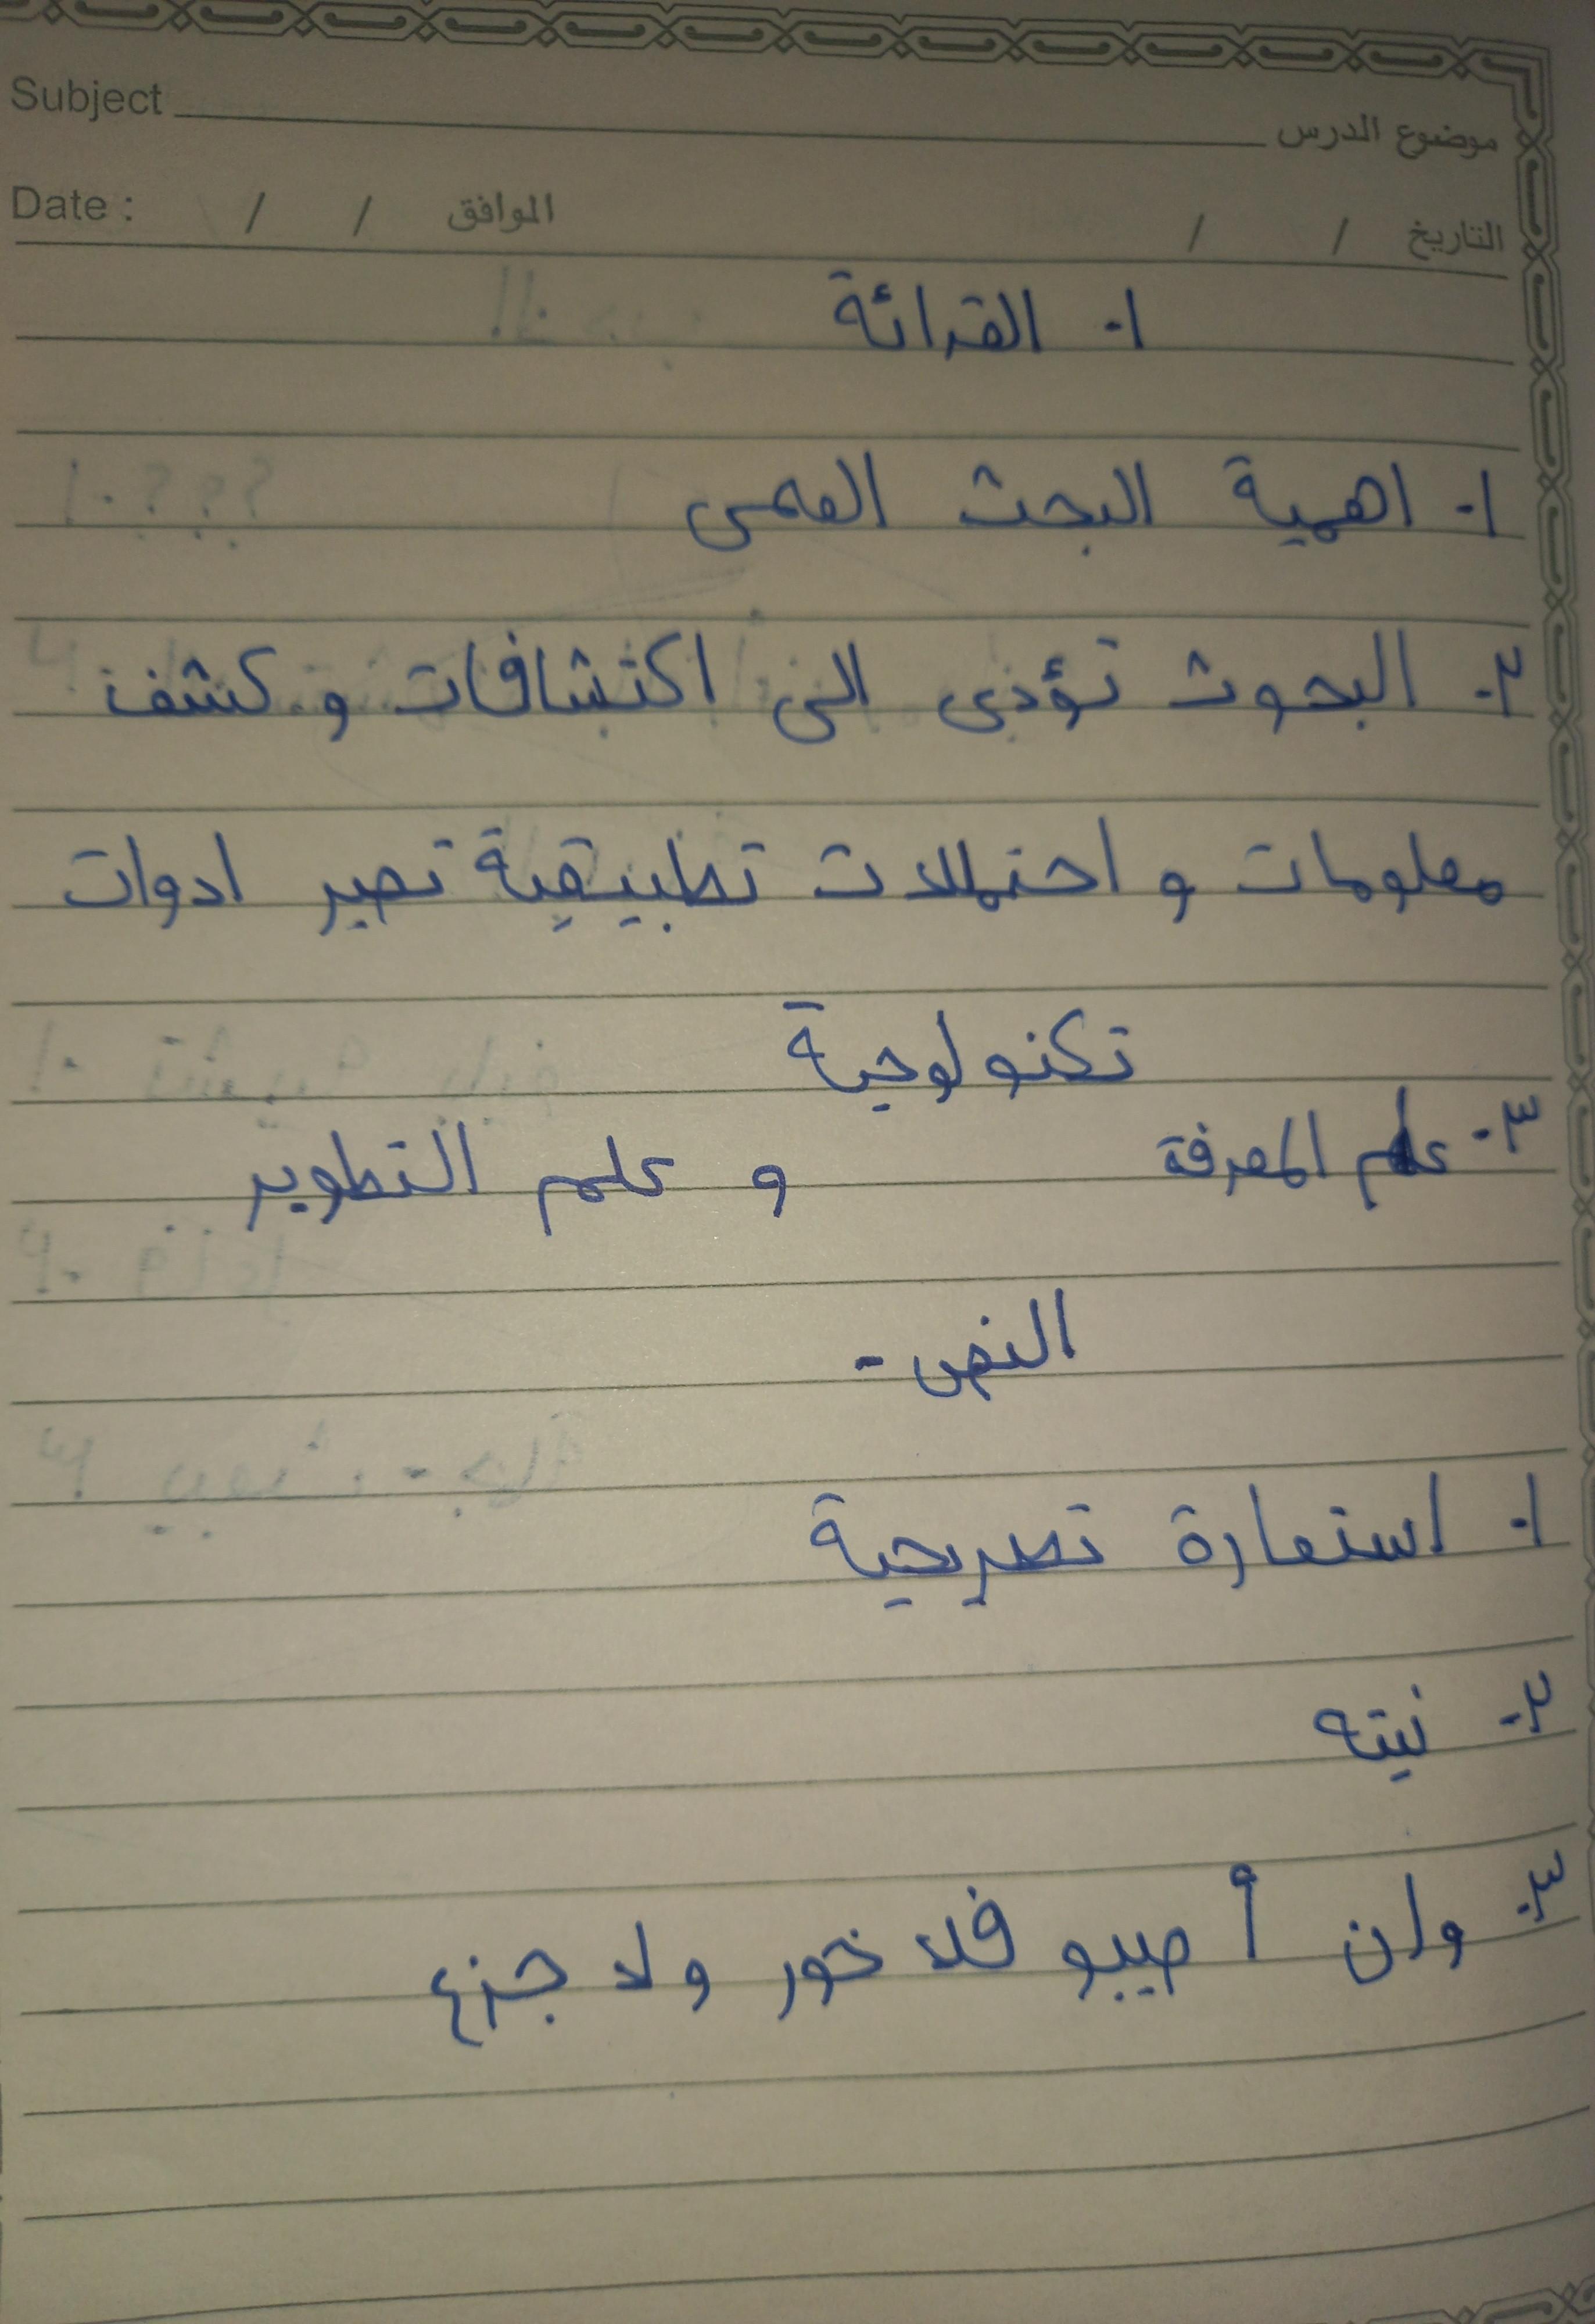 Subject موضوع الدرس
Date : / / الموافق / / التاريخ
١- القرائة
١- اهمية البحث العمى
٢- البحوث تؤدى الى اكتشافات و كشف
معلومات و احتملات تطبيقية تصير ادوات
تكنولوجية
٣- علم المعرفة و علم التطوير
النص -
١- استعارة تصريحية
٢- نيته
٣- وان أصيبو فلا خور ولا جزع